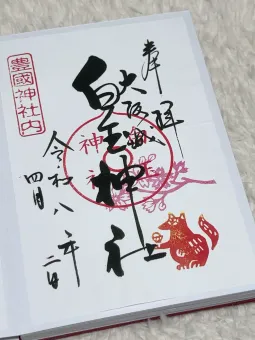 奉拝
大阪城
白玉神社
豊國神社内
令和八年
四月二日